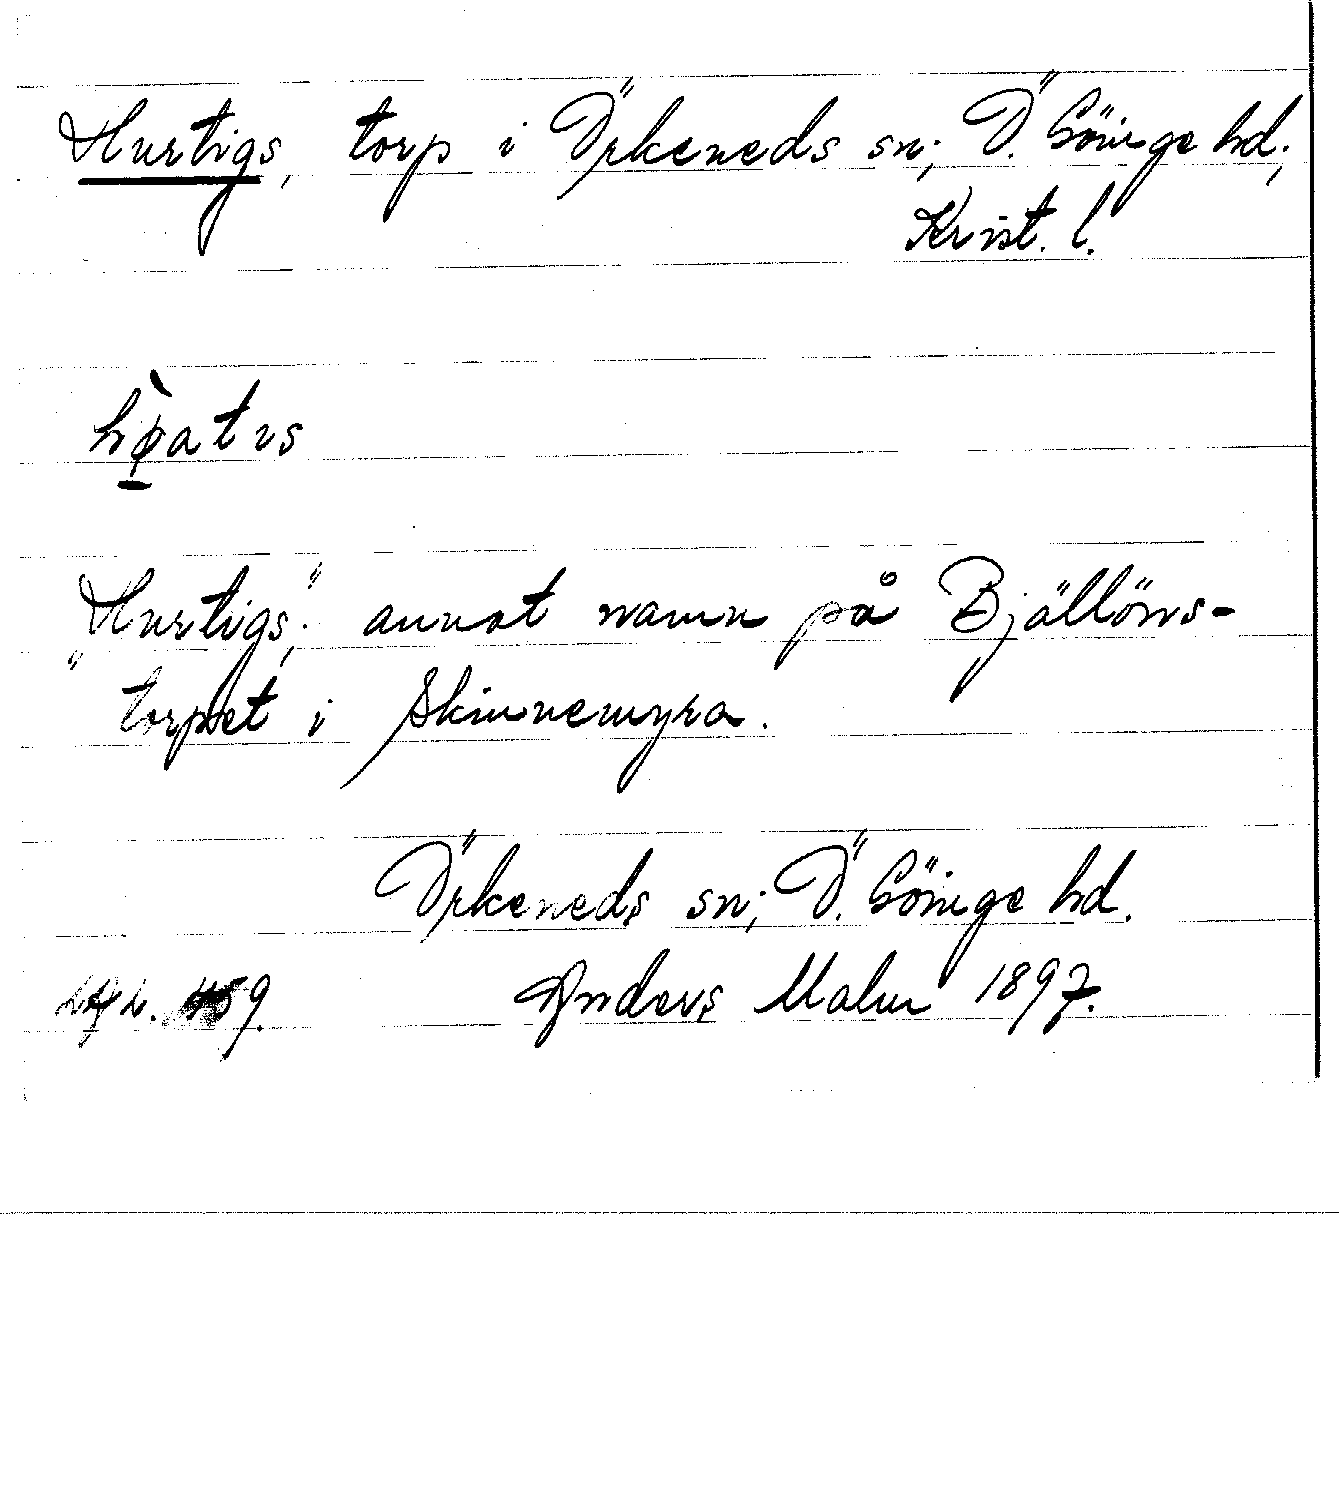 Hurtigs, torp i Örkeneds sn; Ö. Göinge hd.,
Krist. l.
"Hurtigs", annat namn på Bjällöns-
torpet i Skinnemyra.
Örkeneds sn; Ö. Göinge hd.
Anders Malm 1897.